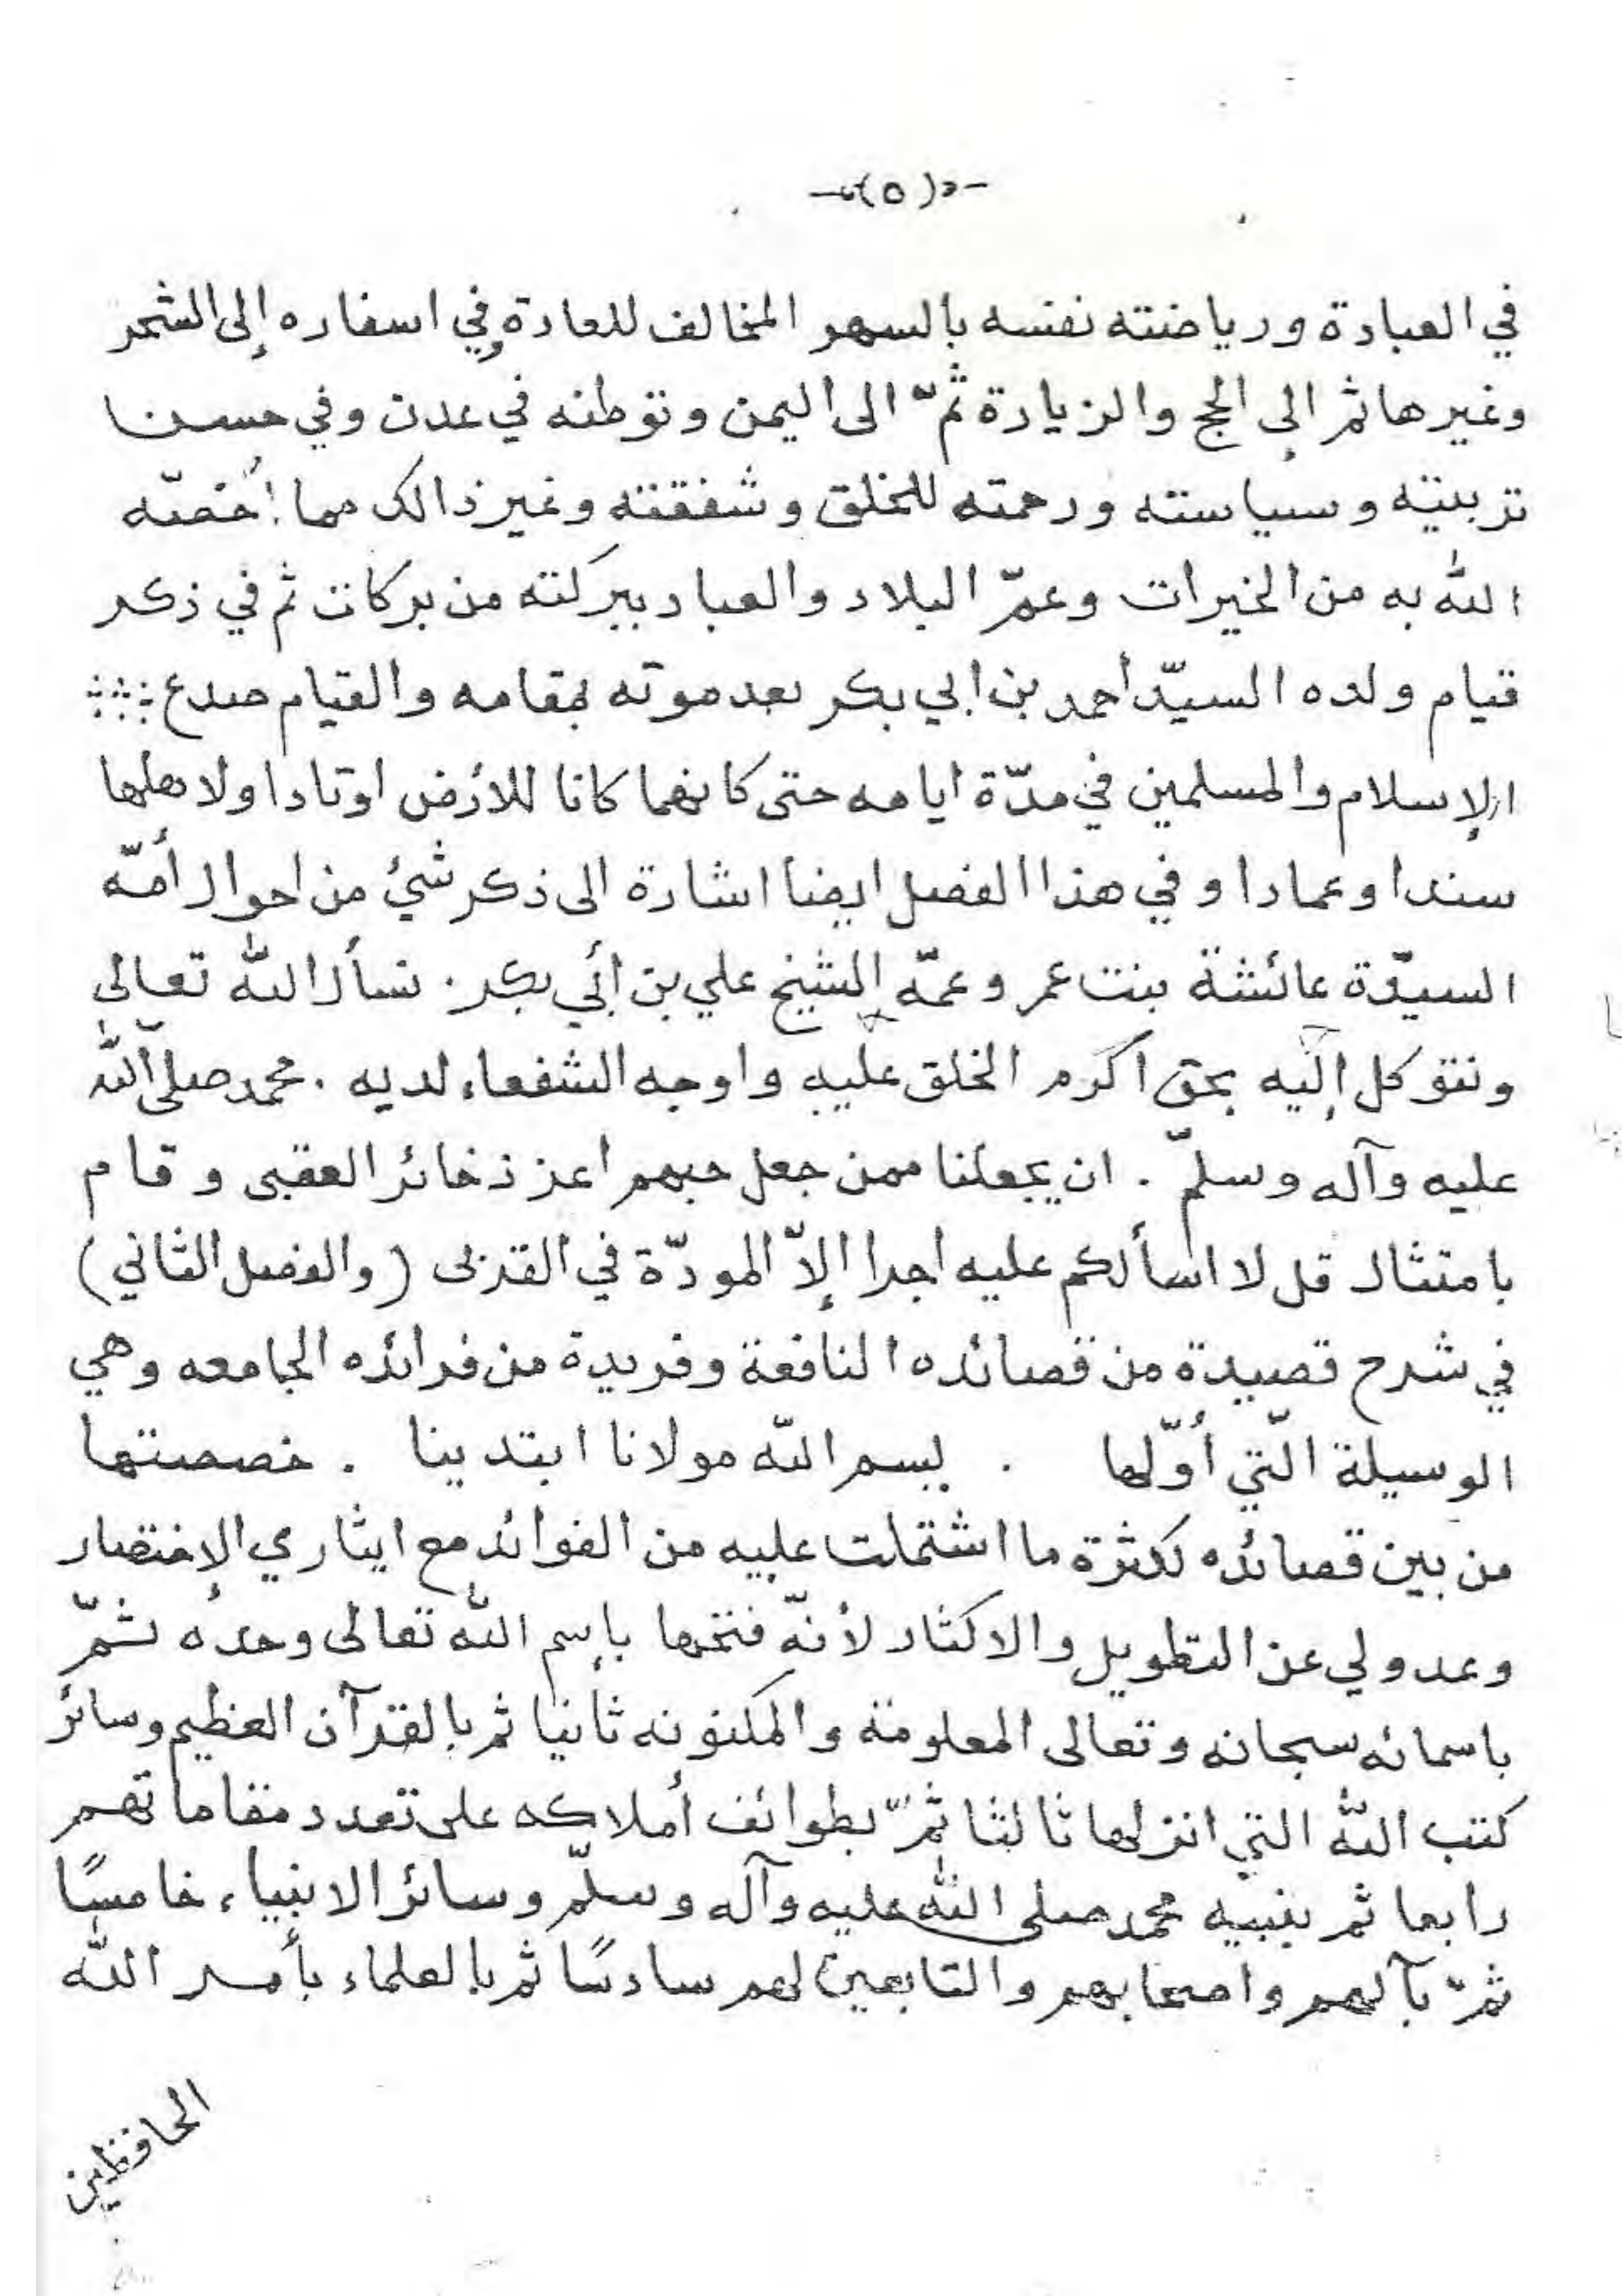 -(٥)-
في العبادة ورياضته نفسه بالسهر المخالف للعادة وفي اسفاره إلى الشحر
وغيرها ثم إلى الحج والزيارة ثمّ الى اليمن وتوطنه في عدن وفي حسن
تربيته وسياسته ورحمته للخلق وشفقته وغير ذالك مما اُخصّه
الله به من الخيرات وعمّ البلاد والعباد ببركته من بركات ثم في ذكر
قيام ولده السيّد أحمد بن ابي بكر بعد موته بمقامه والقيام صدع
الإسلام والمسلمين في مدّة ايامه حتى كانهما كانا للأرض اوتادا ولاهلها
سندا وعمادا وفي هذا الفصل ايضا اشارة الى ذكر شيئ من احوال أمّه
السيّدة عائشة بنت عمر وعمّه الشيخ علي بن أبي بكر . نسأل الله تعالى
ونتوكل إليه بحق اكرم الخلق عليه واوجه الشفعاء لديه . محمد صلّى الله
عليه وآله وسلّم . ان يجعلنا ممن جعل حبهم اعز ذخائر العقبى وقام
بامتثال قل لا اسألكم عليه اجرا إلاّ المودّة في القربى (والفصل الثاني)
في شرح قصيدة من قصائده النافعة وفريدة من فرائده الجامعه وهي
الوسيلة الّتي أوّلها . بسم الله مولانا ابتدينا . خصصتها
من بين قصائده لكثرة ما اشتملت عليه من الفوائد مع ايثاري الإختصار
وعدولي عن التطويل والاكثار لأنّه فتحها بإسم الله تعالى وحده ثمّ
باسمائه سبحانه وتعالى المعلومة والمكنونه ثانيا ثم بالقرآن العظيم وسائر
كتب الله التي انزلها ثالثا ثمّ بطوائف أملاكه على تعدد مقاماتهم
رابعا ثم بنبيه محمد صلى الله عليه وآله وسلّم وسائر الانبياء خامسًا
ثمّ بآلهم واصحابهم والتابعين لهم سادسًا ثم بالعلماء بأمر الله
الحافظين